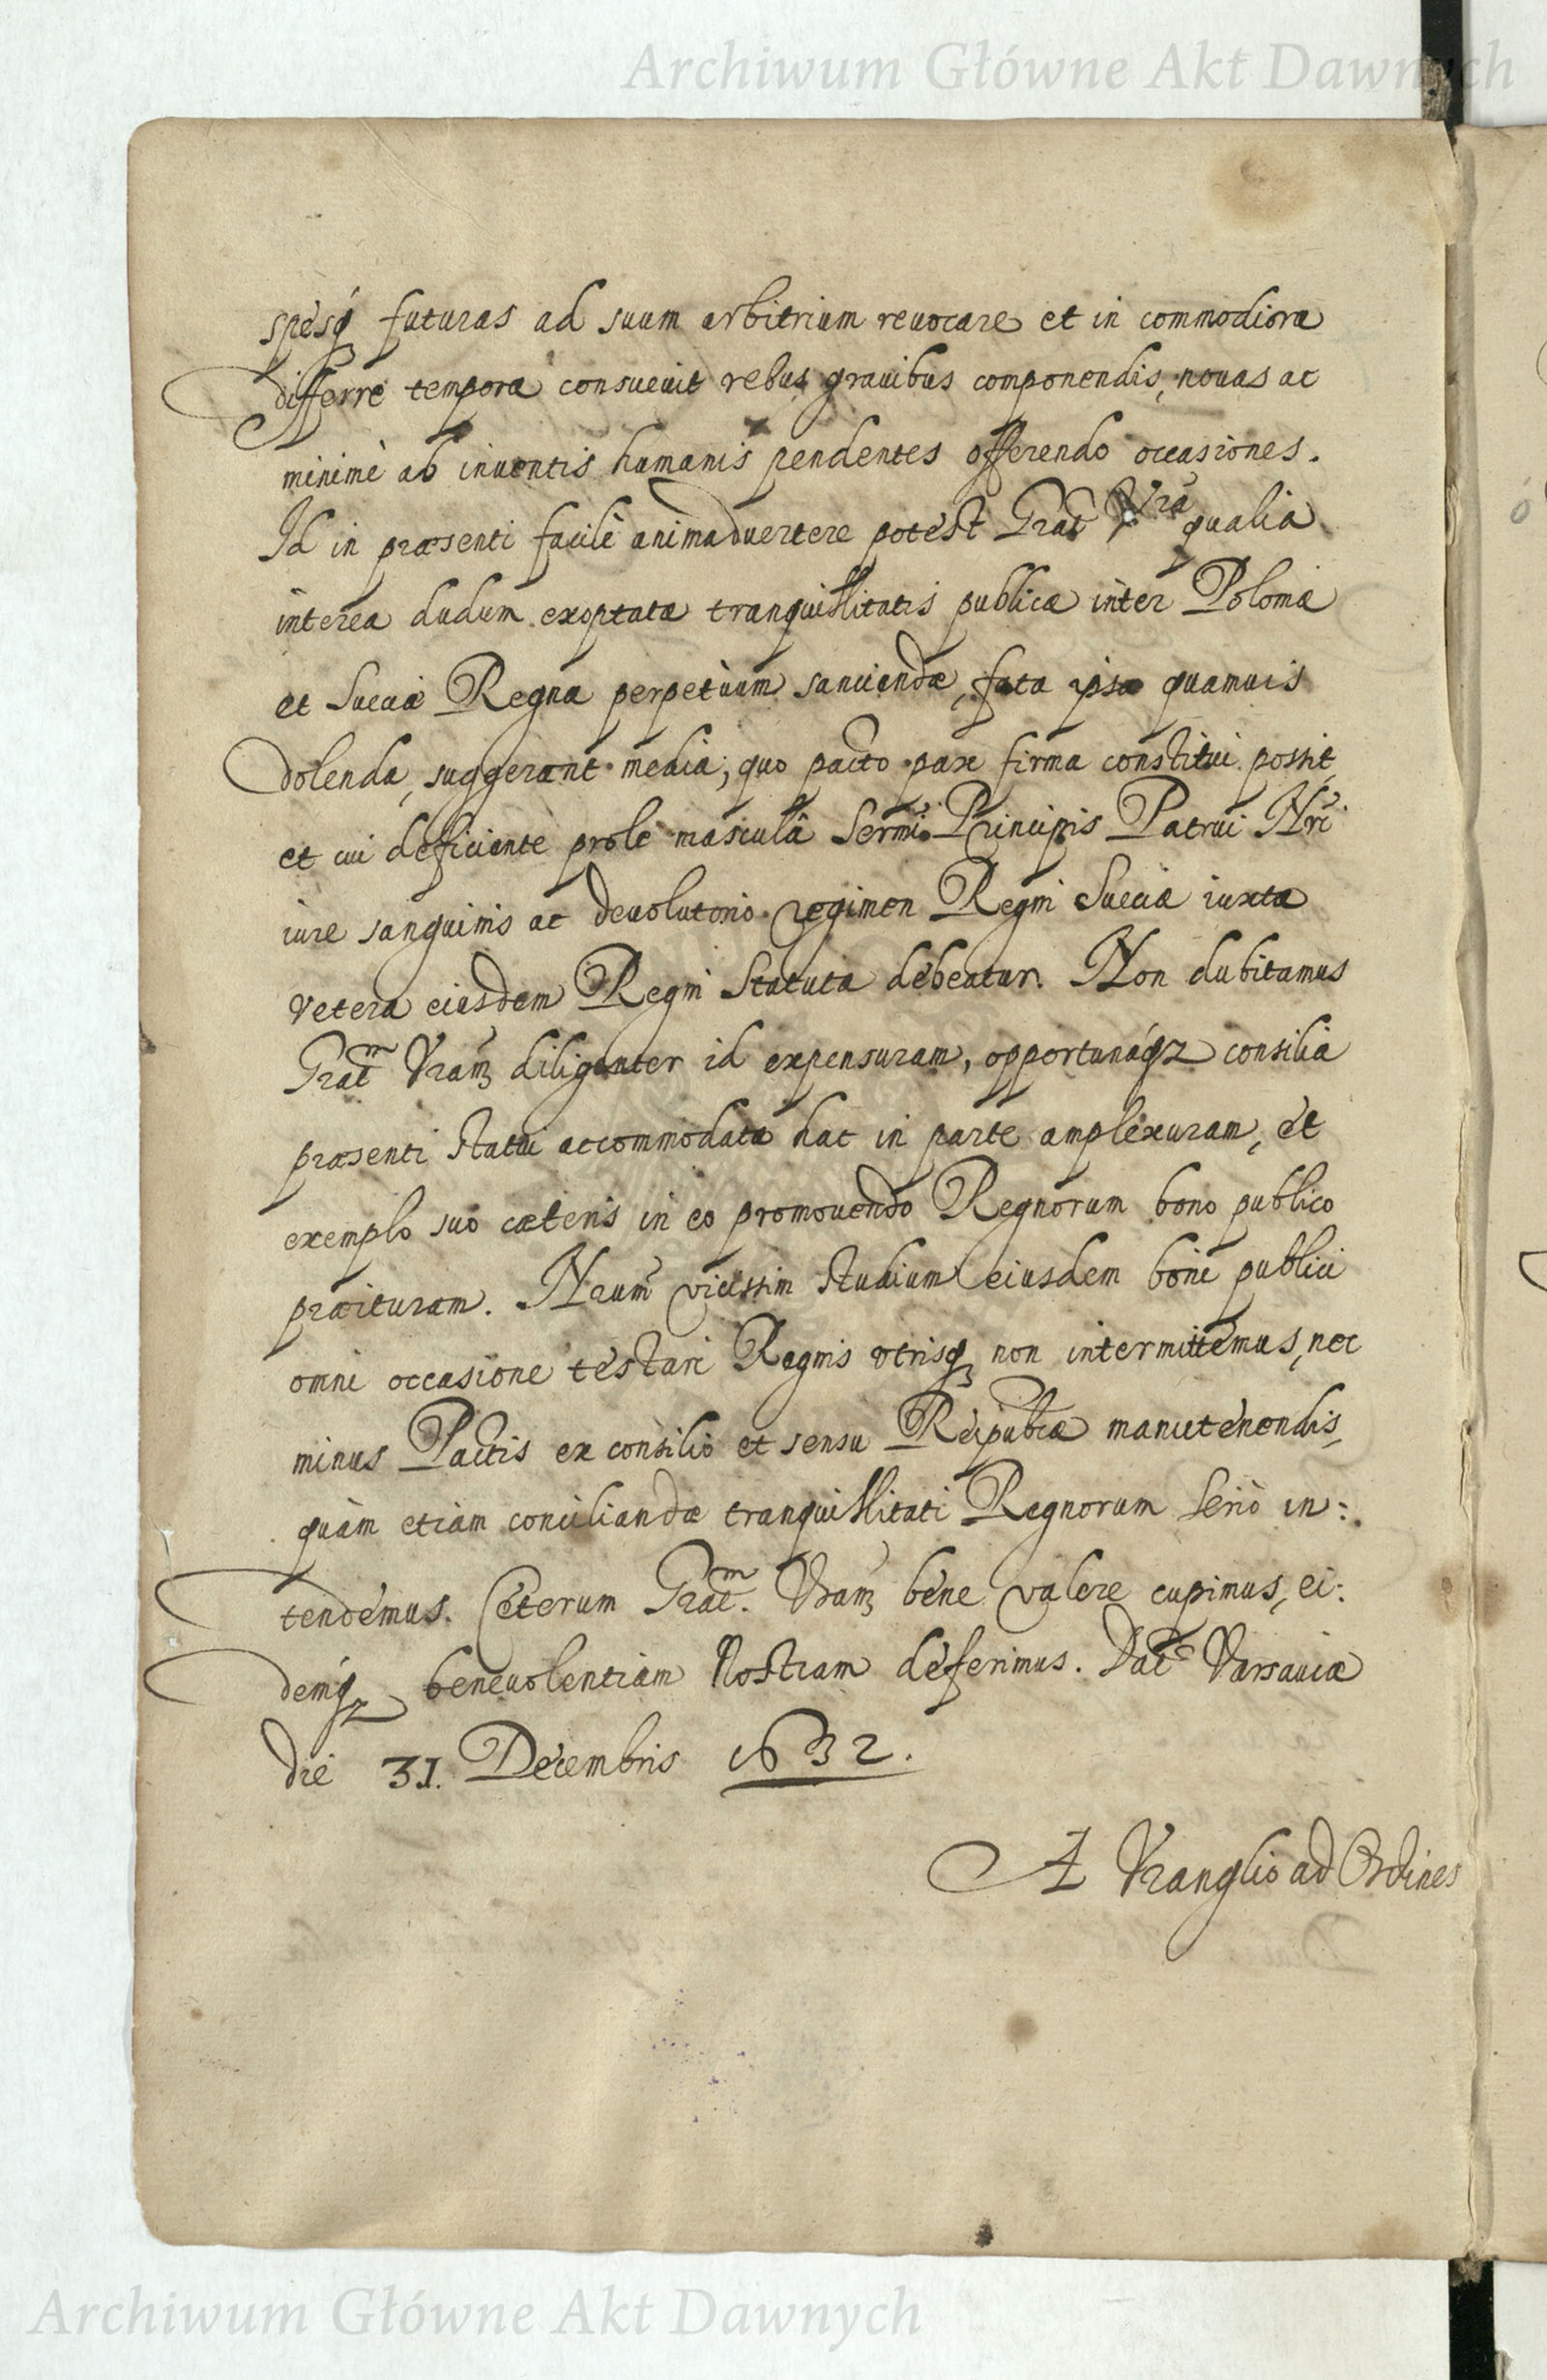 Archiwum Główne Akt Dawnych
spesq́ futuras ad suum arbitrium reuocare et in commodiora
differre tempora consueuit rebus grauibus componendis, nouas ac
minimè ab inuentis humanis pendentes offerendo occasiones.
Id in præsenti facilè animaduertere potest Grat Vrã qualia
interea dudum exoptatæ tranquillitatis publicæ inter Poloniæ
et Sueciæ Regna perpetùum sanciendæ, fata ipsa quamuis
dolenda, suggerant media; quo pacto pax firma constitui possit,
et cui deficiente prole masculâ Sermi Principis Patrui Nrĩ
iure sanguinis ac deuolutorio regimen Regni Sueciæ iuxta
vetera eiusdem Regni Statuta debeatur. Non dubitamus
Gratm Vram̃ diligenter id expensuram, opportunáqz consilia
præsenti statui accommodata hac in parte amplexuram, et
exemplo suo cæteris in eo promouendo Regnorum bono publico
præituram. Nrum̃ vicissim studium eiusdem boni publici
omni occasione testari Regnis vtrisq non intermittemus, nec
minus Pactis ex consilio et sensu Reipubcæ manutenendis,
quàm etiam conciliandæ tranquillitati Regnorum seriò in:
tendemus. Ceterum Gratm. Vram̃ bene valere cupimus, ei:
demq́z beneuolentiam Nostram deferimus. Datæ Varsauiæ
die 31. Decembris 1632.
A Vranglio ad Ordines
Archiwum Główne Akt Dawnych